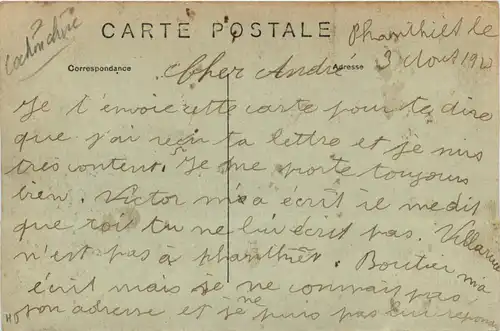 Cochinchine
CARTE POSTALE
Phanthiet le
3 Aout 192
Correspondance
Adresse
Cher André
Je t'envoie cette carte pour te dire
que j'ai reçu ta lettre et je suis
très content. Je me porte toujours
bien. Victor m'a écrit il me dit
que toi tu ne lui écrit pas. Villareau
n'est pas à phanthiêt. Boutier m'a
écrit mais je ne connait pas
son adresse et je ne puis pas lui reponse